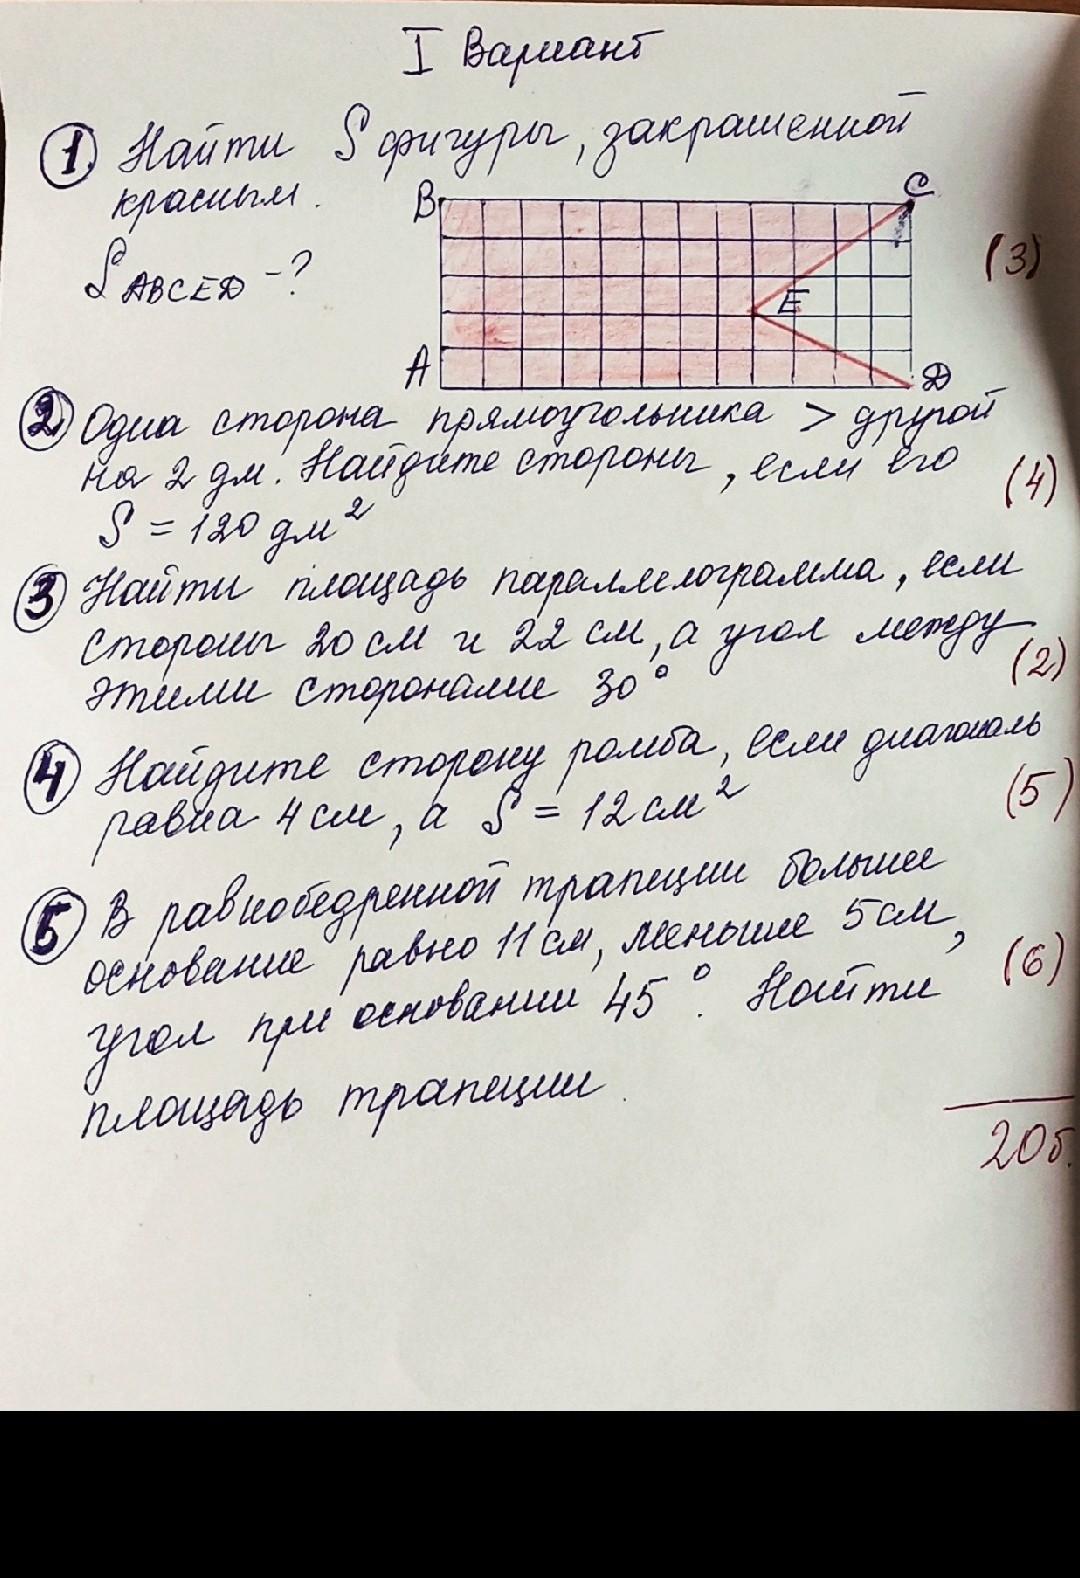 I Вариант
1. Найти S фигуры, закрашенной
красным.
B C
S ABCED - ?
(3)
E
A D
2 Одна сторона прямоугольника > другой
на 2 дм. Найдите стороны, если его
(4)
S = 120 дм²
3 Найти площадь параллелограмма, если
стороны 20 см и 22 см, а угол между
этими сторонами 30°
(2)
4 Найдите сторону ромба, если диагональ
равна 4 см, а S = 12 см²
(5)
5 В равнобедренной трапеции больше
основание равно 11 см, меньше 5 см,
(6)
угол при основании 45°. Найти
площадь трапеции.
20б.